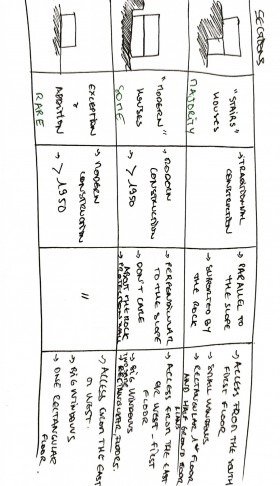 SECTIONS
"STAIRS"
HOUSES
MAJORITY
→ TRADITIONAL
CONSTRUCTION
→ PARALLEL TO
THE SLOPE
→ SUPPORTED BY
THE ROCK
→ ACCESS FROM THE SOUTH
FIRST FLOOR
→ SMALL WINDOWS
→ RECTANGULAR 1st FLOOR
AND HALF SECOND FLOOR
"MODERN"
HOUSES
SOME
→ MODERN
CONSTRUCTION
→ > 1950
→ PERPENDICULAR
TO THE SLOPE
→ DON'T CARE
ABOUT THE ROCK
→ ACCESS FROM THE EAST
OR WEST - FIRST
FLOOR
→ BIG WINDOWS
→ RECTANGULAR FLOORS.
EXCEPTION
&
ADDITION
RARE
→ MODERN
CONSTRUCTION
→ > 1950
"
→ ACCESS FROM THE EAST
OR WEST.
→ BIG WINDOWS
→ ONE RECTANGULAR
FLOOR.